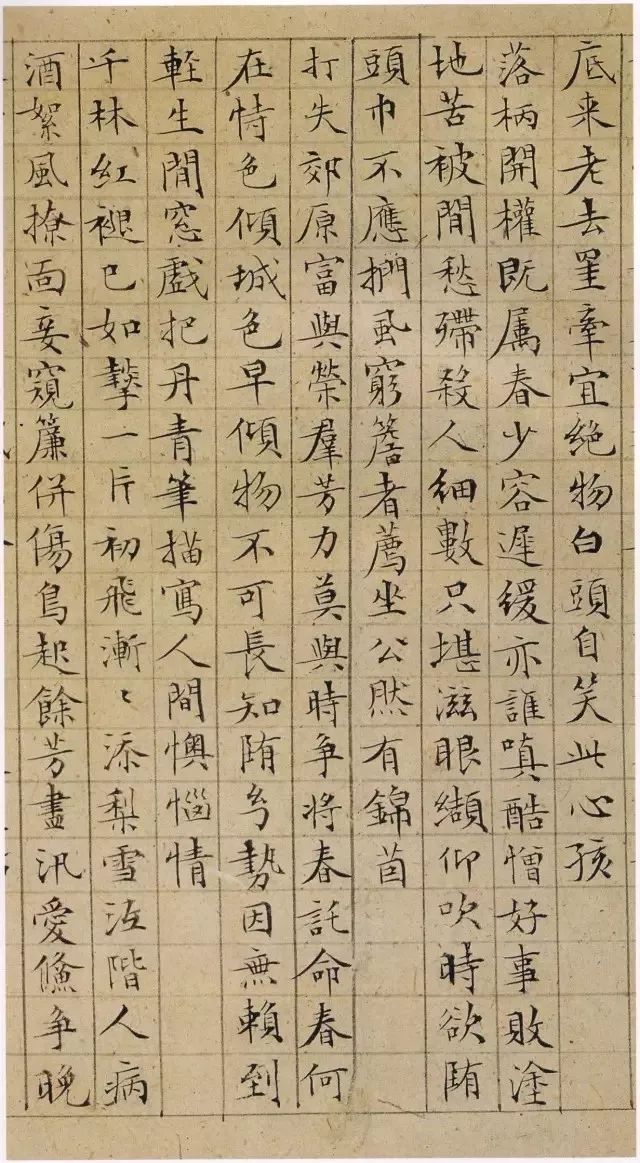 底来老去罣牽宜絶物白頭自笑此心孩
落柄開權既属春少容遲緩亦誰嗔酷憎好事敗塗
地苦被閒愁殢殺人細數只堪滋眼纈仰吹時欲陏
頭巾不應捫風窮簷者薦坐公然有錦茵
打失郊原富與榮羣芳力莫與時争将春託命春何
在恃色傾城色早傾物不可長知陏幻勢因無賴到
軽生閒窓戲把丹青筆描寫人間懊惱情
千林紅褪已如摯一片初飛漸〻添梨雪泣階人病
酒絮風撩面妾窺簾併傷鳥起餘芳盡汎愛鯈争晚